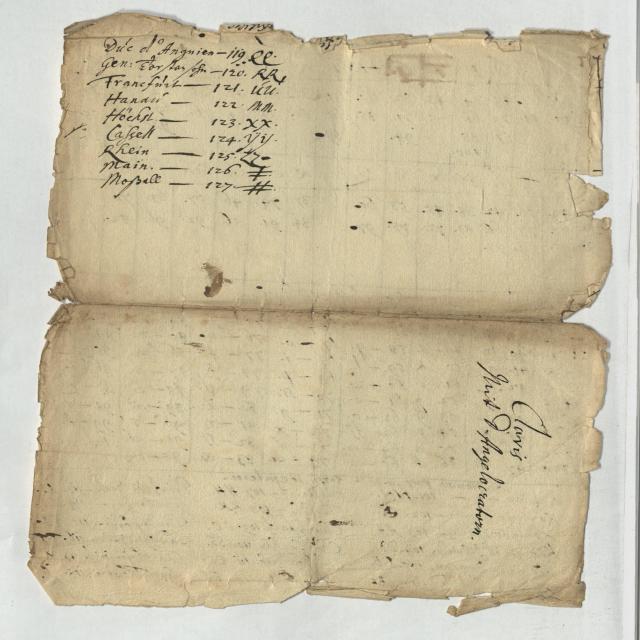 Duc d'Anguien — 119. QQ
Gen: Torstenssn — 120. RR.
Francfurt — 121. uu.
Hanau — 122. nn.
Höchst — 123. xx.
Cassell — 124. ÿÿ.
Rhein — 125. zz.
Main. — 126.
Mosell — 127. #
Clavis
Mit D. Angelocratorn.